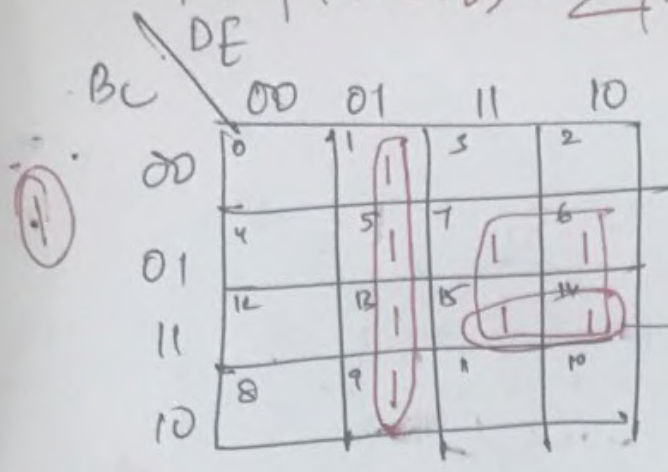 DE
BC 00 01 11 10
00 0 1 1 3 2
01 4 5 1 7 1 6 1
11 12 13 1 15 1 14 1
10 8 9 1 11 10